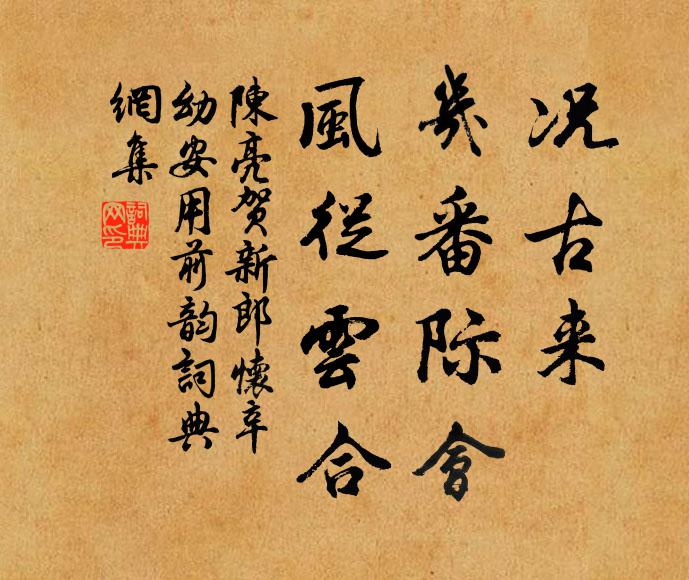 况古来
幾番际會
風從雲合
陳亮賀新郎懷辛
幼安用前韵詞典
網集
詞典
网印